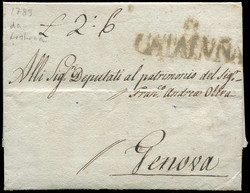 1789
£ 2:6
CATALUÑA
Alli Sig.ri Deputati al patrimonio del Sig.r
Fran.co Andrea Oltra
Genova